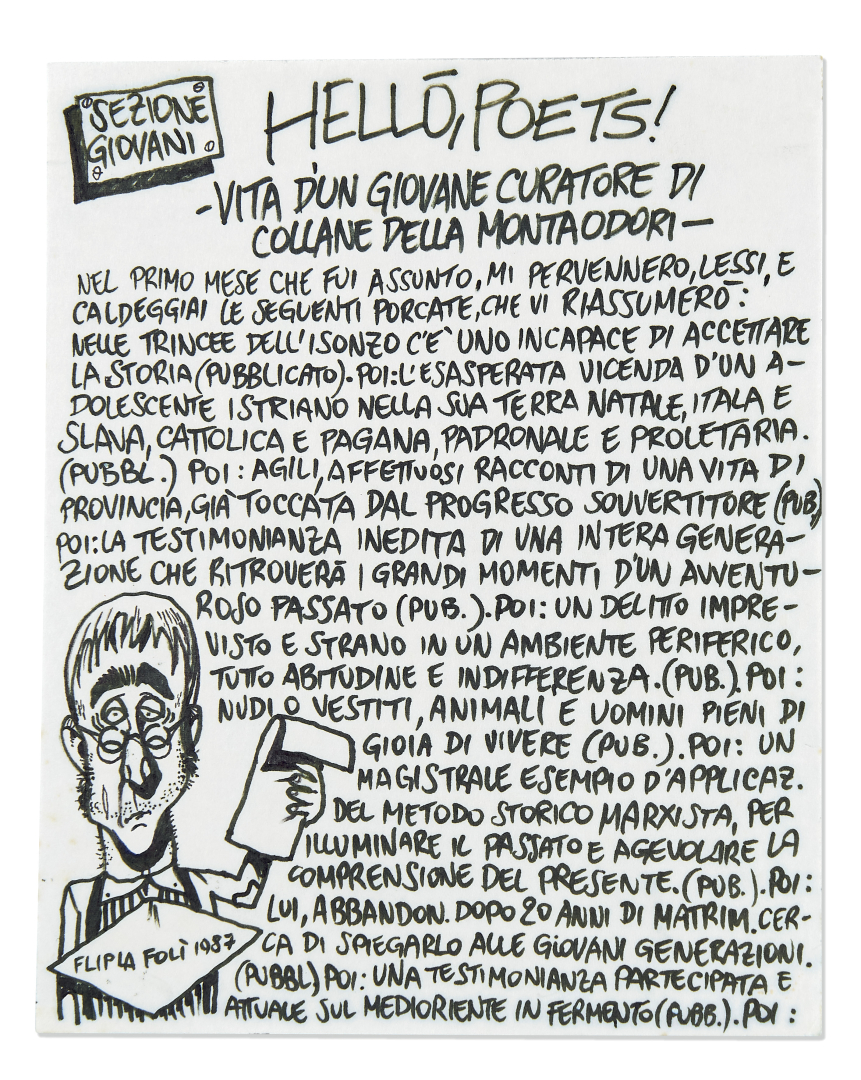 SEZIONE
GIOVANI
HELLŌ, POETS!
-VITA D'UN GIOVANE CURATORE DI
COLLANE DELLA MONTAODORI-
NEL PRIMO MESE CHE FUI ASSUNTO, MI PERVENNERO, LESSI, E
CALDEGGIAI LE SEGUENTI PORCATE, CHE VI RIASSUMERÒ:
NELLE TRINCEE DELL'ISONZO C'E' UNO INCAPACE DI ACCETTARE
LA STORIA (PUBBLICATO). POI: L'ESASPERATA VICENDA D'UN A-
DOLESCENTE ISTRIANO NELLA SUA TERRA NATALE, ITALA E
SLAVA, CATTOLICA E PAGANA, PADRONALE E PROLETARIA.
(PUBBL.) POI: AGILI, AFFETTUOSI RACCONTI DI UNA VITA DI
PROVINCIA, GIÀ TOCCATA DAL PROGRESSO SOVVERTITORE (PUB)
POI: LA TESTIMONIANZA INEDITA DI UNA INTERA GENERA-
ZIONE CHE RITROVERÀ I GRANDI MOMENTI D'UN AVVENTU-
ROSO PASSATO (PUB.). POI: UN DELITTO IMPRE-
VISTO E STRANO IN UN AMBIENTE PERIFERICO,
TUTTO ABITUDINE E INDIFFERENZA. (PUB.). POI:
NUDI O VESTITI, ANIMALI E UOMINI PIENI DI
GIOIA DI VIVERE (PUB.). POI: UN
MAGISTRALE ESEMPIO D'APPLICAZ.
DEL METODO STORICO MARXISTA, PER
ILLUMINARE IL PASSATO E AGEVOLARE LA
COMPRENSIONE DEL PRESENTE. (PUB.). POI:
LUI, ABBANDON. DOPO 20 ANNI DI MATRIM. CER-
CA DI SPIEGARLO ALLE GIOVANI GENERAZIONI.
(PUBBL) POI: UNA TESTIMONIANZA PARTECIPATA E
ATTUALE SUL MEDIORIENTE IN FERMENTO (PUBB.). POI:
FLIPLA FOLÌ 1987